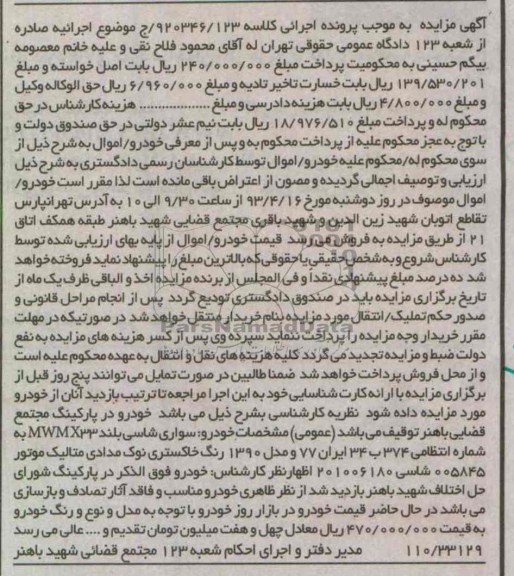 آگهی مزایده به موجب پرونده اجرائی کلاسه ۹۲۰۳۴۶/۱۲۳/ج موضوع اجرائیه صادره
از شعبه ۱۲۳ دادگاه عمومی حقوقی تهران له آقای محمود فلاح نقی و علیه خانم معصومه
بیگم حسینی به محکومیت پرداخت مبلغ ۲۴۰/۰۰۰/۰۰۰ ریال بابت اصل خواسته و مبلغ
۱۳۹/۵۳۰/۲۰۱ ریال بابت خسارت تاخیر تادیه و مبلغ ۶/۹۶۰/۰۰۰ ریال حق الوکاله وکیل
و مبلغ ۴/۸۰۰/۰۰۰ ریال بابت هزینه دادرسی و مبلغ .................. هزینه کارشناس در حق
محکوم له و پرداخت مبلغ ۱۸/۹۷۶/۵۱۰ ریال بابت نیم عشر دولتی در حق صندوق دولت و
با توج به عجز محکوم علیه از پرداخت محکوم به و پس از معرفی خودرو/اموال به شرح ذیل از
سوی محکوم له/محکوم علیه خودرو/اموال توسط کارشناسان رسمی دادگستری به شرح ذیل
ارزیابی و توصیف اجمالی گردیده و مصون از اعتراض باقی مانده است لذا مقرر است خودرو/
اموال موصوف در روز دوشنبه مورخ ۹۳/۴/۱۶ از ساعت ۹/۳۰ الی ۱۰ به آدرس تهرانپارس
تقاطع اتوبان شهید زین الدین و شهید باقری مجتمع قضایی شهید باهنر طبقه همکف اتاق
۲۱ از طریق مزایده به فروش می رسد قیمت خودرو/اموال از پایه بهای ارزیابی شده توسط
کارشناس شروع و به شخص حقیقی یا حقوقی که بالاترین مبلغ را پیشنهاد نماید فروخته خواهد
شد ده درصد مبلغ پیشنهادی نقدا و فی المجلس از برنده مزایده اخذ و الباقی ظرف یک ماه از
تاریخ برگزاری مزایده باید در صندوق دادگستری تودیع گردد پس از انجام مراحل قانونی و
صدور حکم تملیک/انتقال مورد مزایده بنام خریدار منتقل خواهد شد در صورتیکه در مهلت
مقرر خریدار وجه مزایده را پرداخت ننماید سپرده وی پس از کسر هزینه های مزایده به نفع
دولت ضبط و مزایده تجدید می گردد کلیه هزینه های نقل و انتقال به عهده محکوم علیه است
و از محل فروش پرداخت خواهد شد ضمنا طالبین در صورت تمایل می توانند پنج روز قبل از
برگزاری مزایده با ارائه کارت شناسایی خود به این اجرا مراجعه تا ترتیب بازدید آنان از خودرو
مورد مزایده داده شود نظریه کارشناسی بشرح ذیل می باشد خودرو در پارکینگ مجتمع
قضایی باهنر توقیف می باشد (عمومی) مشخصات خودرو: سواری شاسی بلند MWMX۳۳ به
شماره انتظامی ۳۷۴ ب ۳۴ ایران ۷۷ و مدل ۱۳۹۰ رنگ خاکستری نوک مدادی متالیک موتور
۰۰۵۸۴۵ شاسی ۲۰۱۰۰۶۱۸۰ اظهارنظر کارشناس: خودرو فوق الذکر در پارکینگ شورای
حل اختلاف شهید باهنر بازدید شد از نظر ظاهری خودرو مناسب و فاقد آثار تصادف و بازسازی
می باشد در حال حاضر قیمت خودرو در بازار روز خودرو با توجه به مدل و نوع و رنگ خودرو
به قیمت ۴۷۰/۰۰۰/۰۰۰ ریال معادل چهل و هفت میلیون تومان تقدیم و .... عالی می رسد
۱۱۰/۳۳۱۲۹ مدیر دفتر و اجرای احکام شعبه ۱۲۳ مجتمع قضائی شهید باهنر
ParsNamadData